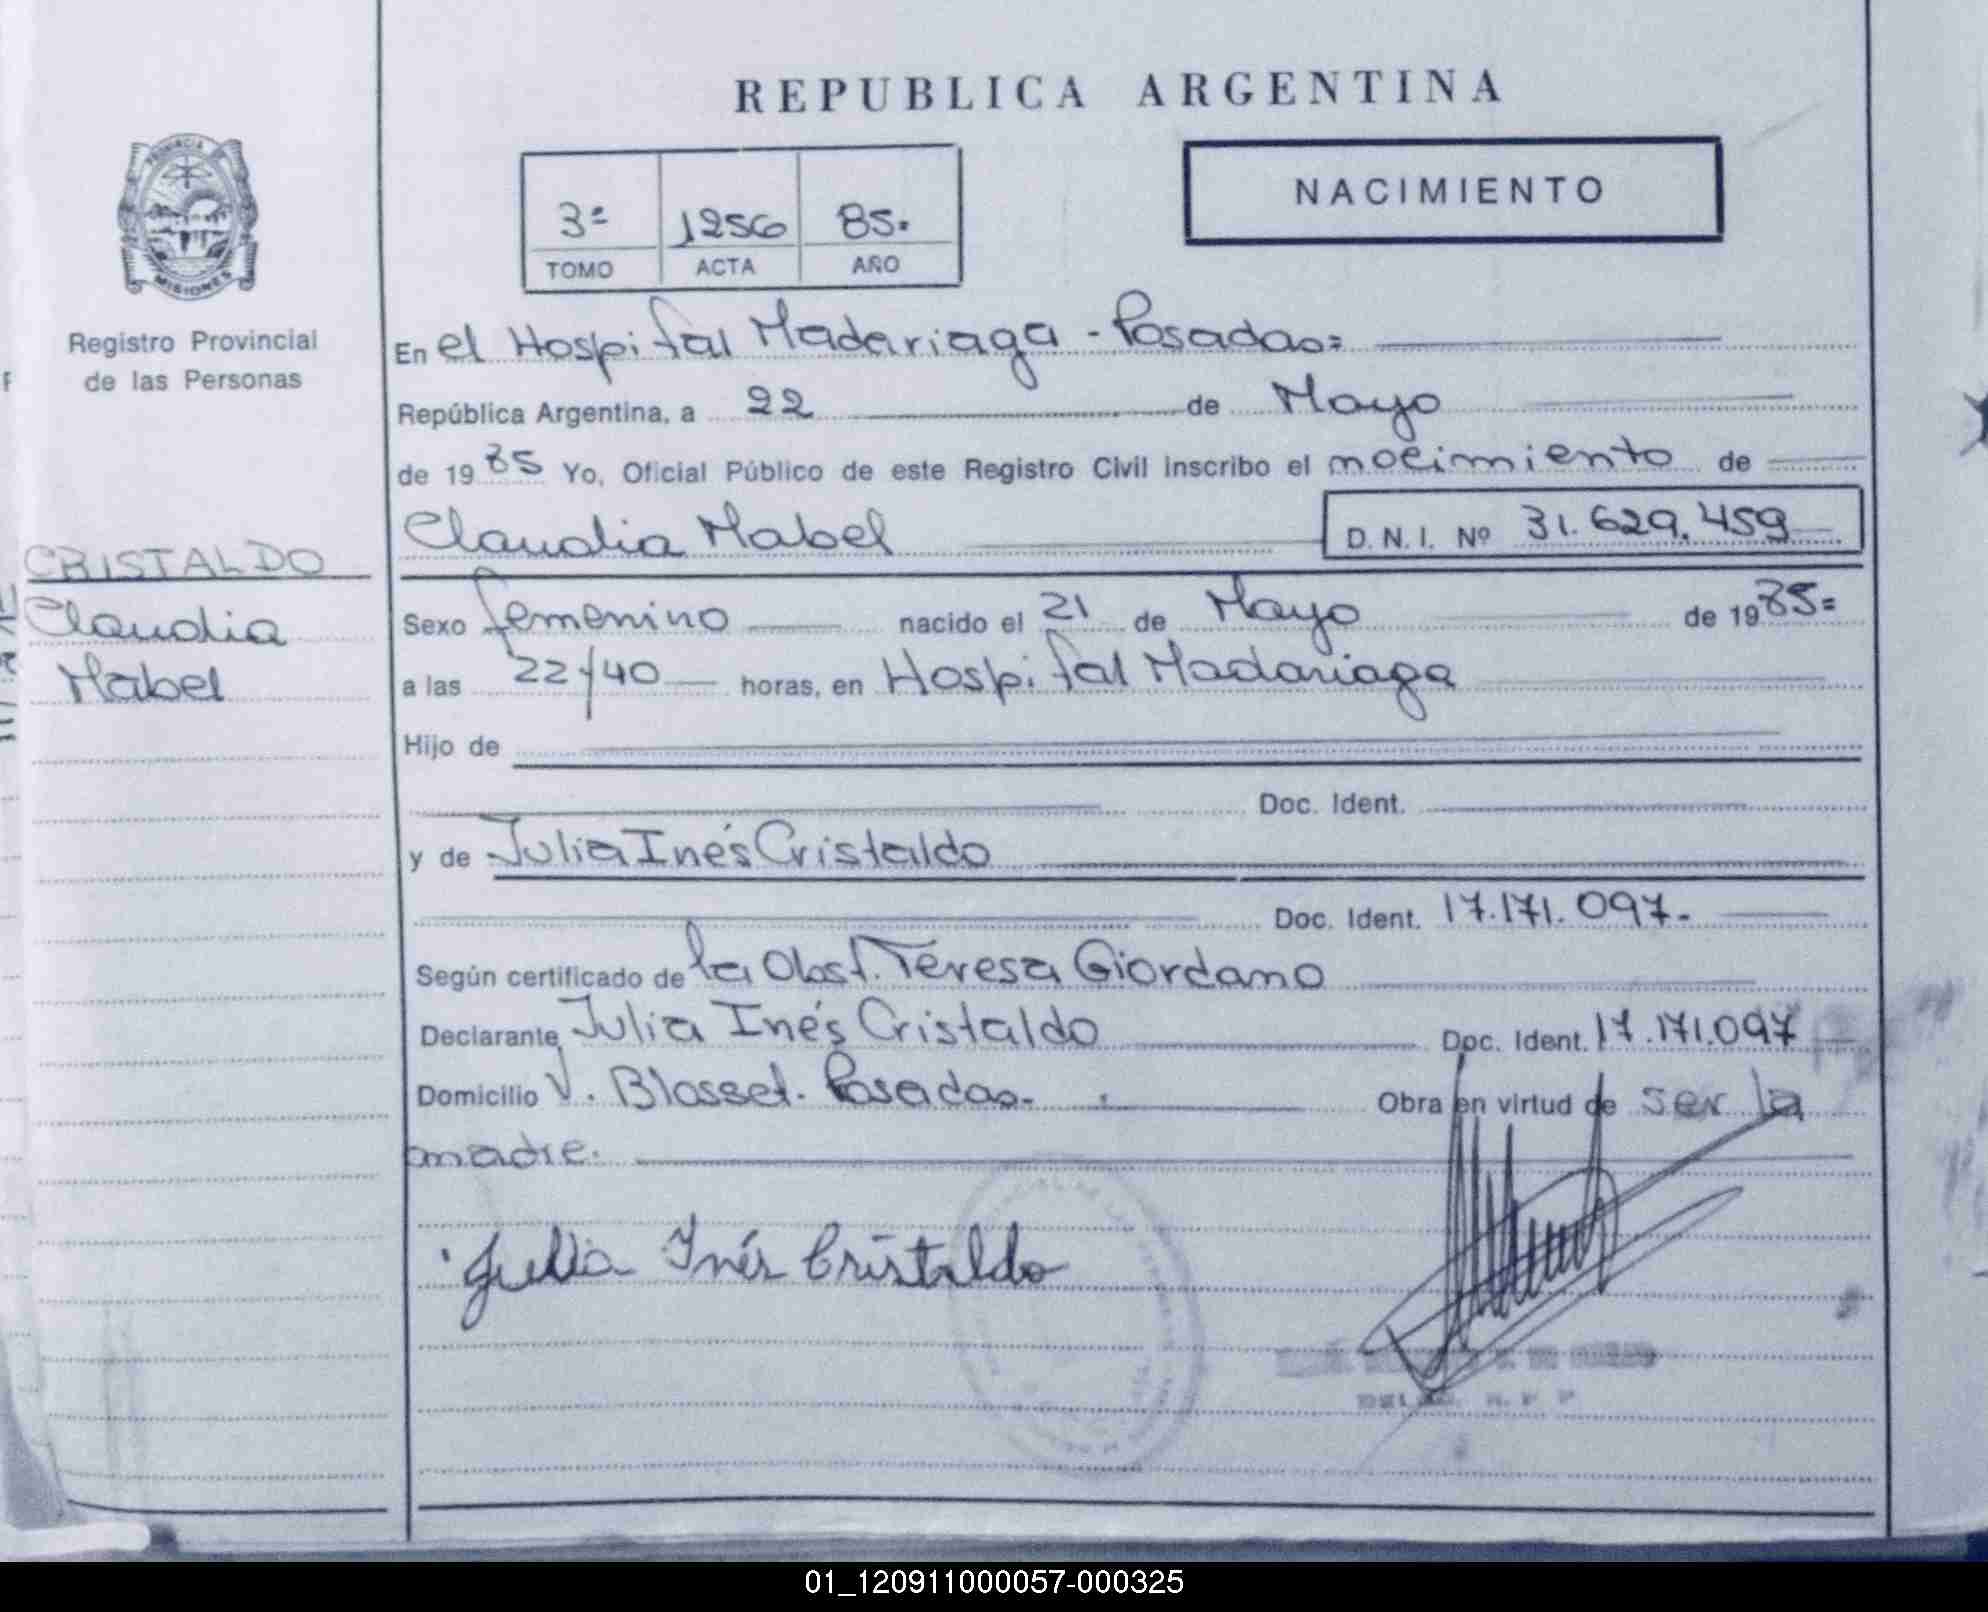 REPUBLICA ARGENTINA
PROVINCIA
MISIONES
Registro Provincial
de las Personas
3ª 1256 85.
TOMO ACTA AÑO
NACIMIENTO
En el Hospital Madariaga - Posadas=
República Argentina, a 22 de Mayo
de 1985 Yo, Oficial Público de este Registro Civil inscribo el nacimiento de
Claudia Mabel D. N. I. Nº 31.629.459
CRISTALDO
Claudia
Mabel
Sexo femenino nacido el 21 de Mayo de 1985=
a las 22/40 horas, en Hospital Madariaga
Hijo de
Doc. Ident.
y de Julia Inés Cristaldo
Doc. Ident. 17.171.097.-
Según certificado de la Obst. Teresa Giordano
Declarante Julia Inés Cristaldo Doc. Ident. 17.171.097
Domicilio V. Blosset. Posadas. Obra en virtud de ser la
madre.
Julia Inés Cristaldo
01_120911000057-000325